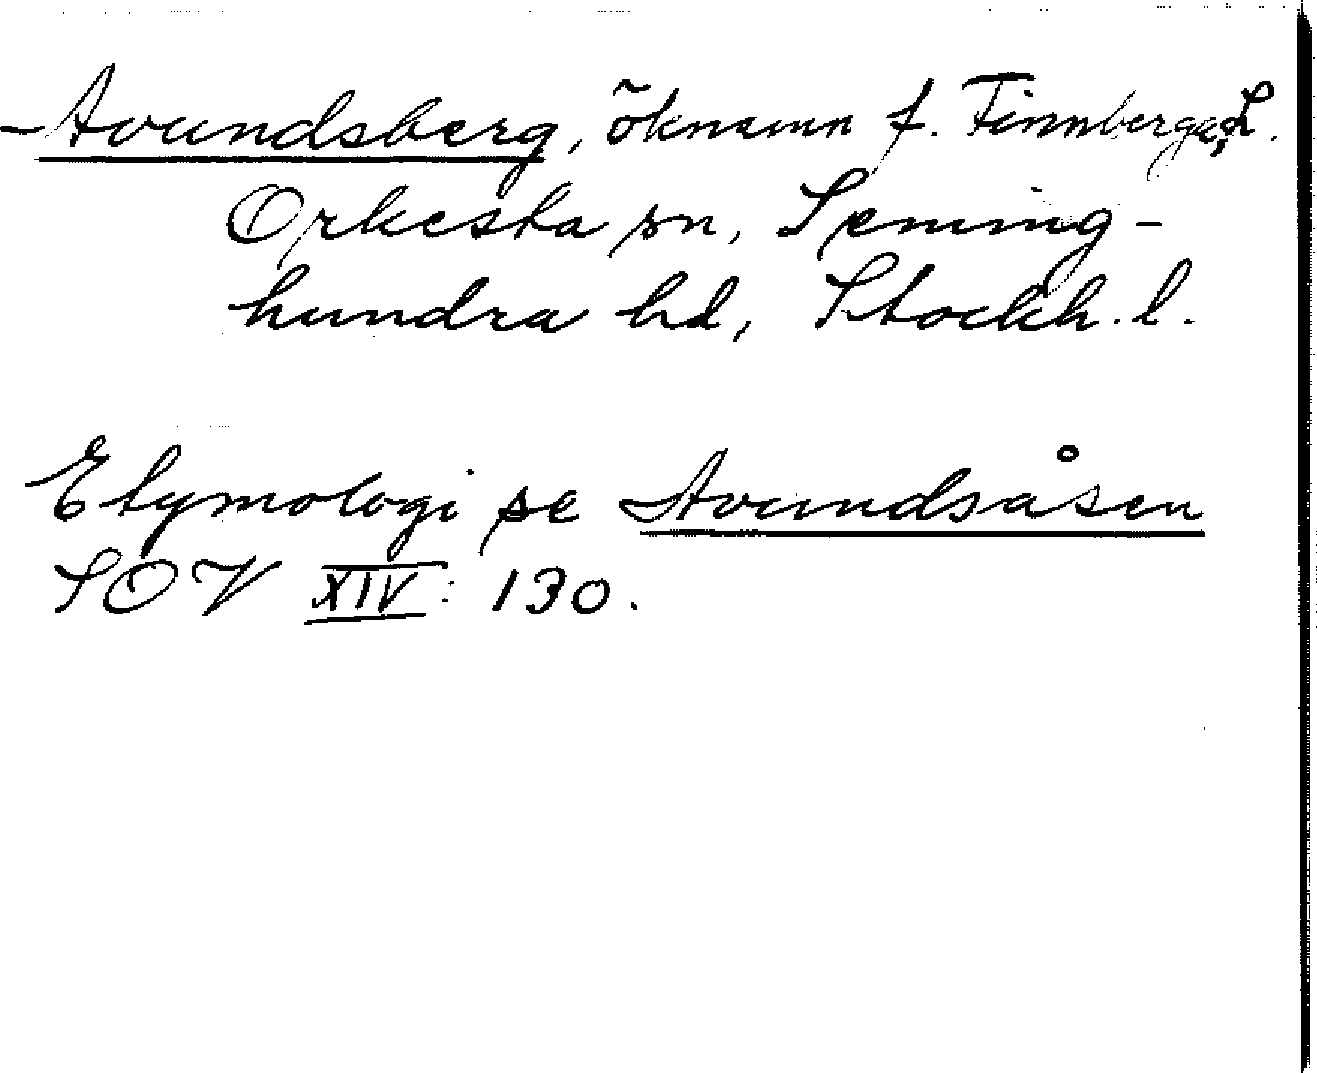 Avundsberg, öknamn f. Finnberga, L.
Orkesta sn, Seming-
hundra hd, Stockh. l.
Etymologi se Avundsåsen
SOV XIV: 130.